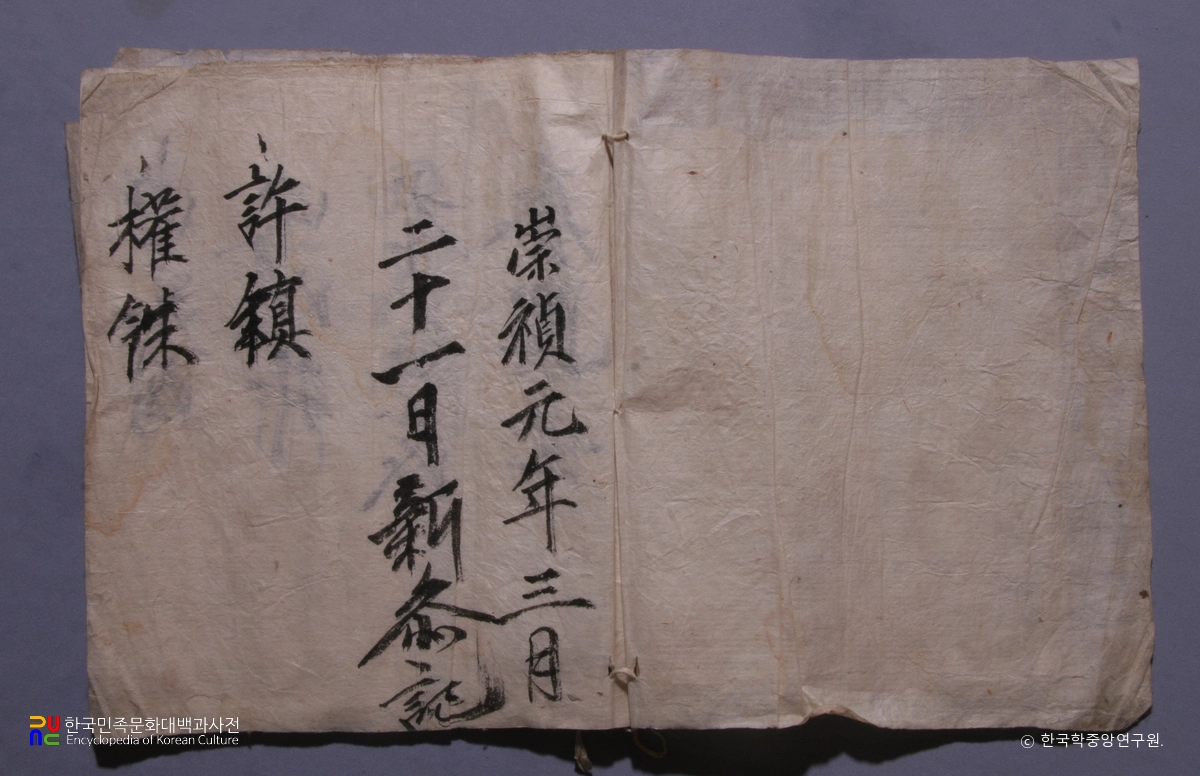 崇禎元年三月
二十一日新参記
許鎮
權
한국민족문화대백과사전
Encyclopedia of Korean Culture
© 한국학중앙연구원.